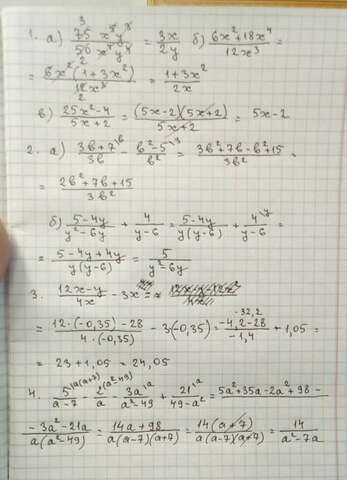 1. а) 75 x⁵y³ / 50 x⁴y⁴ = 3x / 2y б) 6x²+18x⁴ / 12x³ =
= 6x²(1+3x²) / 12x³ = 1+3x² / 2x
в) 25x²-4 / 5x+2 = (5x-2)(5x+2) / 5x+2 = 5x-2
2. а) 3b+7 / 3b - b²-5 / b² = 3b²+7b-b²+15 / 3b² =
= 2b²+7b+15 / 3b²
б) 5-4y / y²-6y + 4 / y-6 = 5-4y / y(y-6) + 4 / y-6 =
= 5-4y+4y / y(y-6) = 5 / y²-6y
3. 12x-y / 4x - 3x =
= 12·(-0,35)-28 / 4·(-0,35) - 3(-0,35) = -4,2-28 / -1,4 + 1,05 =
-32,2
= 23+1,05 = 24,05
4. 5 / a-7 - 2 / a - 3a / a²-49 + 21 / 49-a² = 5a²+35a-2a²+98-
-3a²-21a / a(a²-49) = 14a+98 / a(a-7)(a+7) = 14(a+7) / a(a-7)(a+7) = 14 / a²-7a